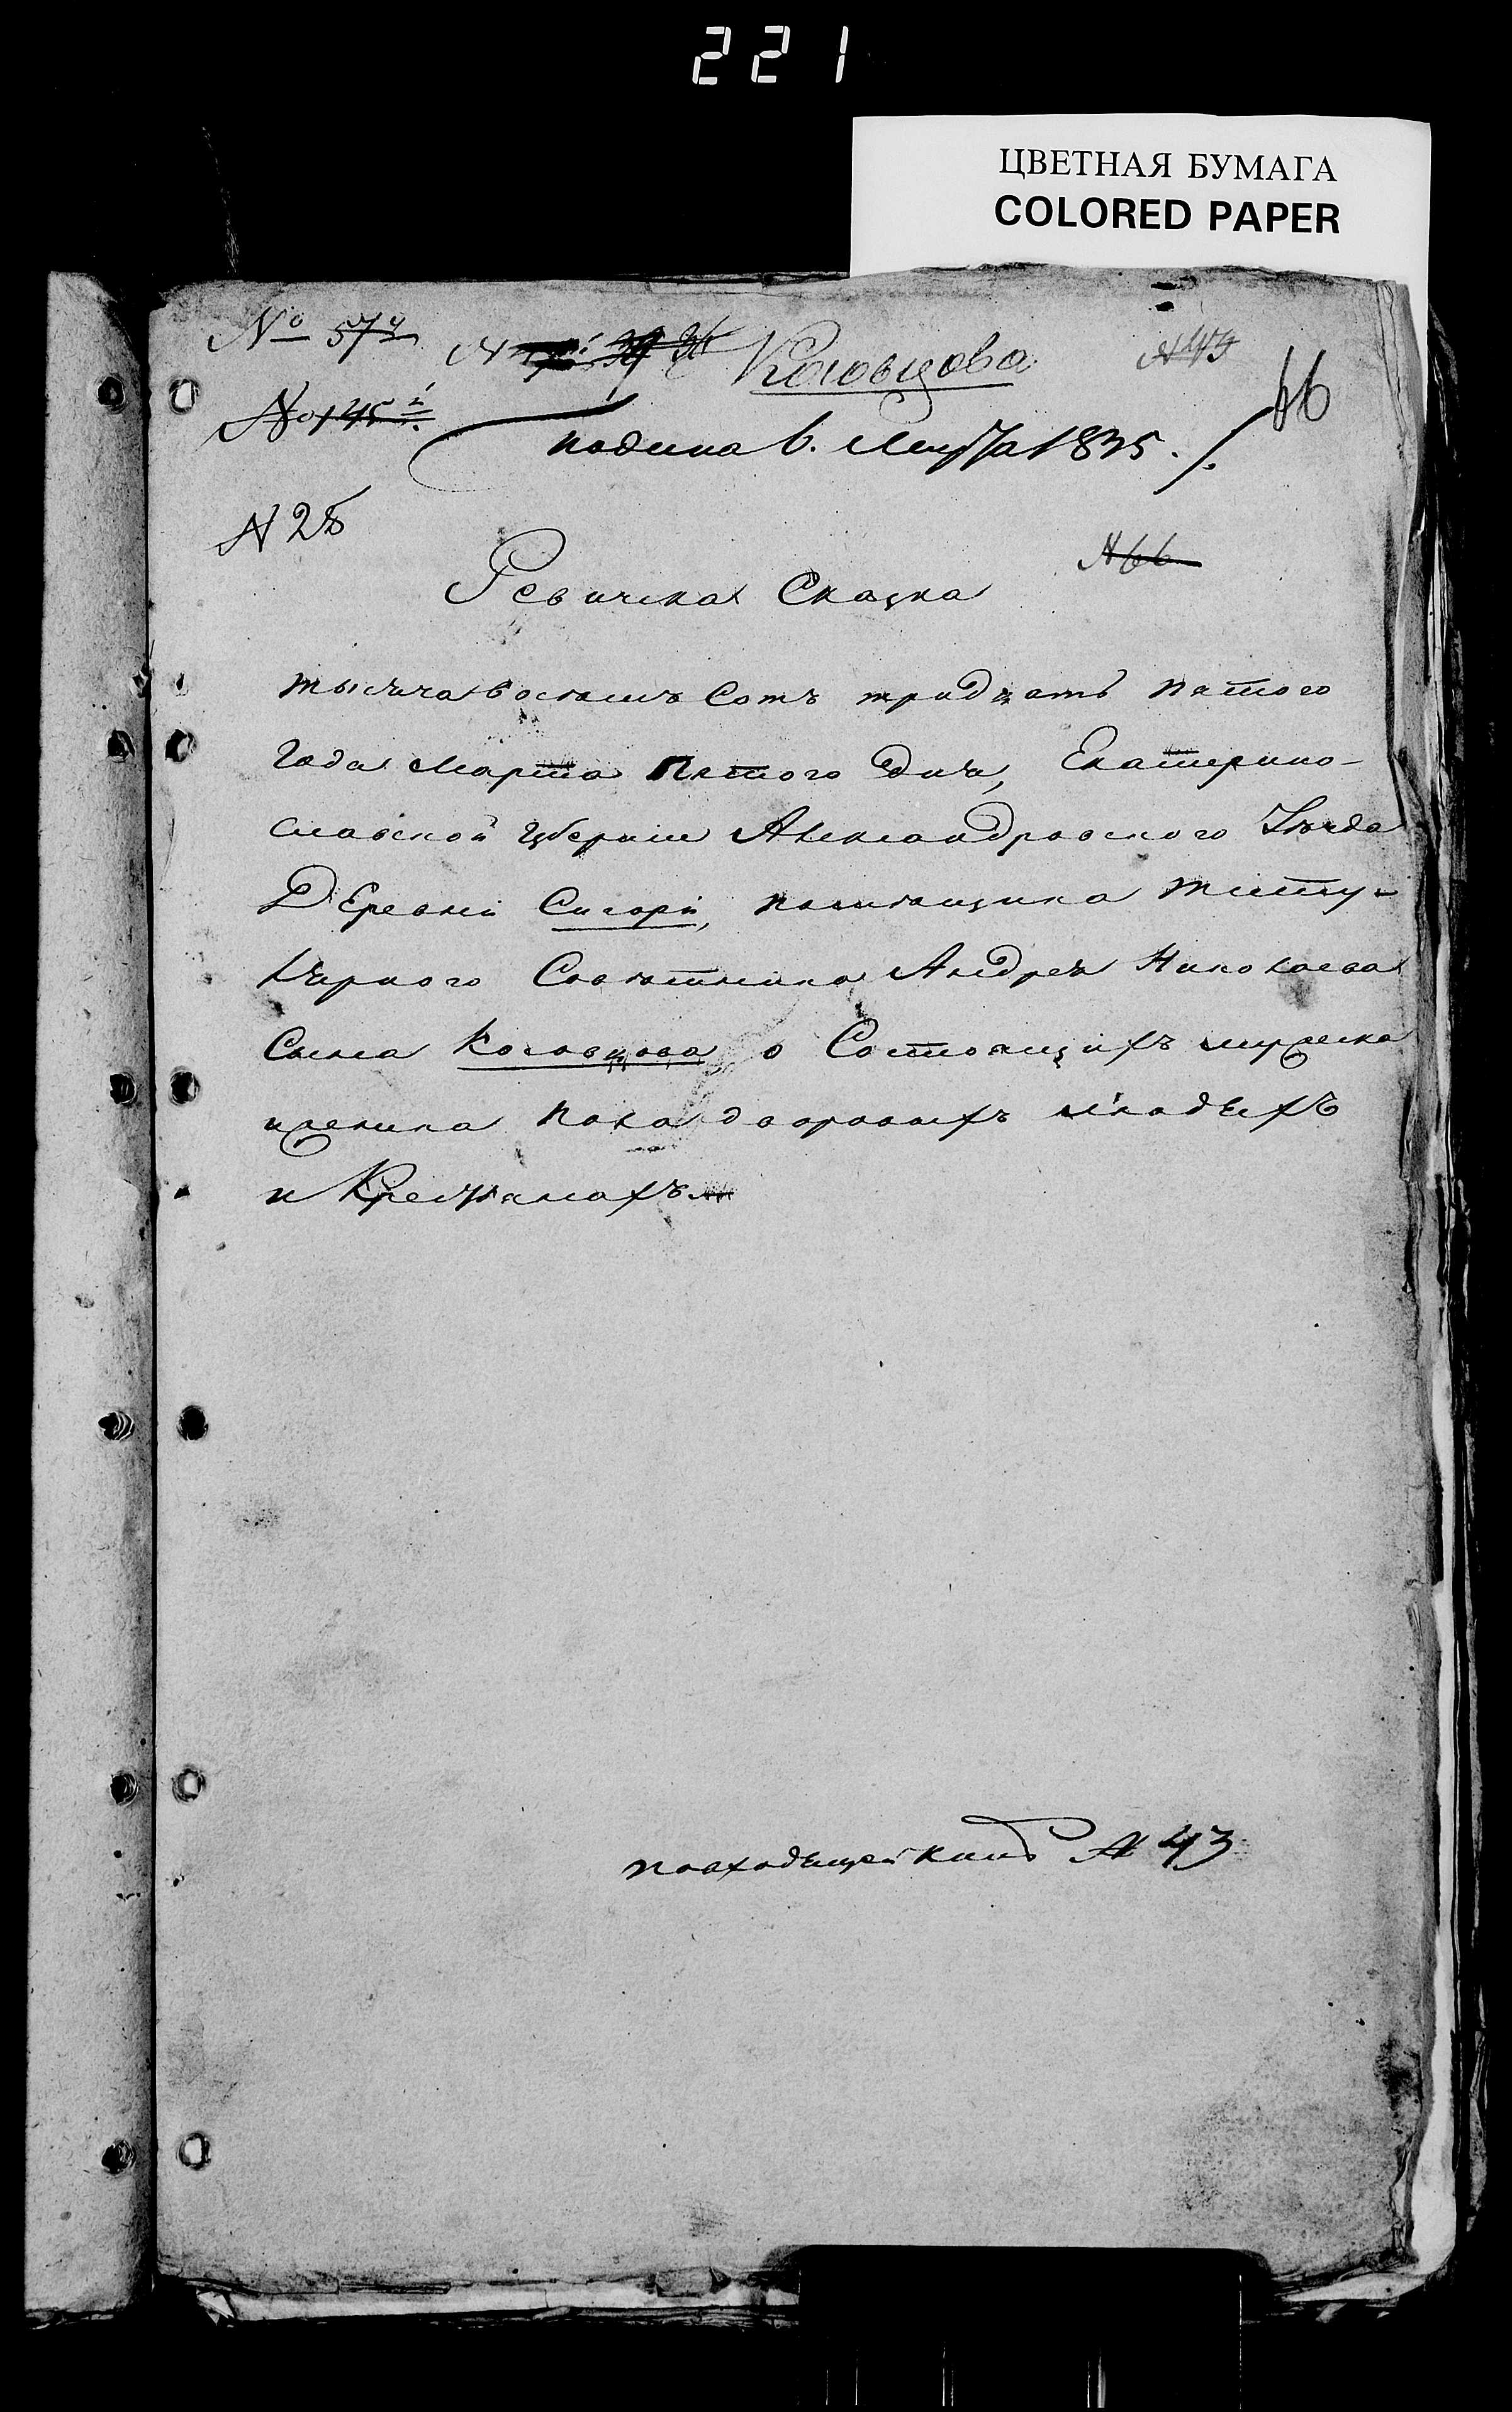 221
ЦВЕТНАЯ БУМАГА
COLORED PAPER
№ 574
Коговцова
№ 43
66
№ 145
подана 6. Марта 1835.
№ 28
№ 66
Ревическа Сказка
тысяча восемъ Сотъ тридцать пятого
Года Марта Пятого дня, Екатерино-
славской Губернии Александровского Уезда
Деревни Сигори, помещика титу-
лярного Советника Андрея Николаева
Сына Коговцова о Состоящихъ мужеска
и женска пола дворовыхъ людехъ
и Крестьянахъ
повходящей книге № 43